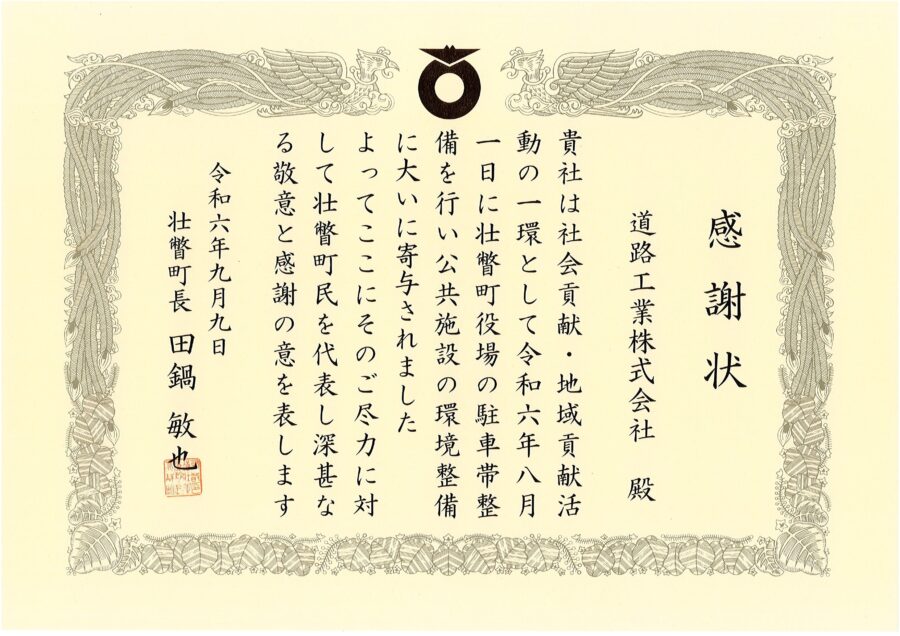 感謝状
道路工業株式会社 殿
貴社は社会貢献・地域貢献活
動の一環として令和六年八月
一日に壮瞥町役場の駐車帯整
備を行い公共施設の環境整備
に大いに寄与されました
よってここにそのご尽力に対
して壮瞥町民を代表し深甚な
る敬意と感謝の意を表します
令和六年九月九日
壮瞥町長 田鍋 敏也